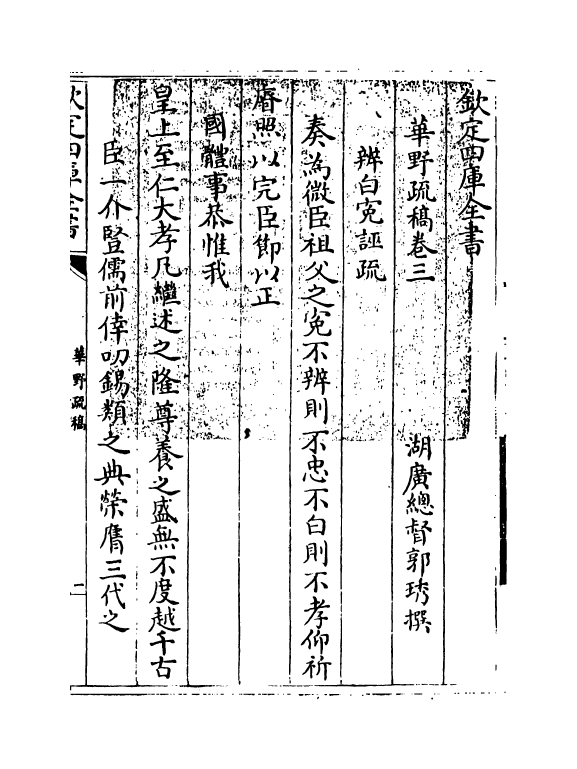 欽定四庫全書
華野疏稿卷三
湖廣總督郭琇撰
辨白冤誣疏
奏為微臣祖父之冤不辨則不忠不白則不孝仰祈
睿照以完臣節以正
國體事恭惟我
皇上至仁大孝凡繼述之隆尊養之盛無不度越千古
臣一介豎儒前倖叨錫類之典榮膺三代之
欽定四庫全書
華野疏稿